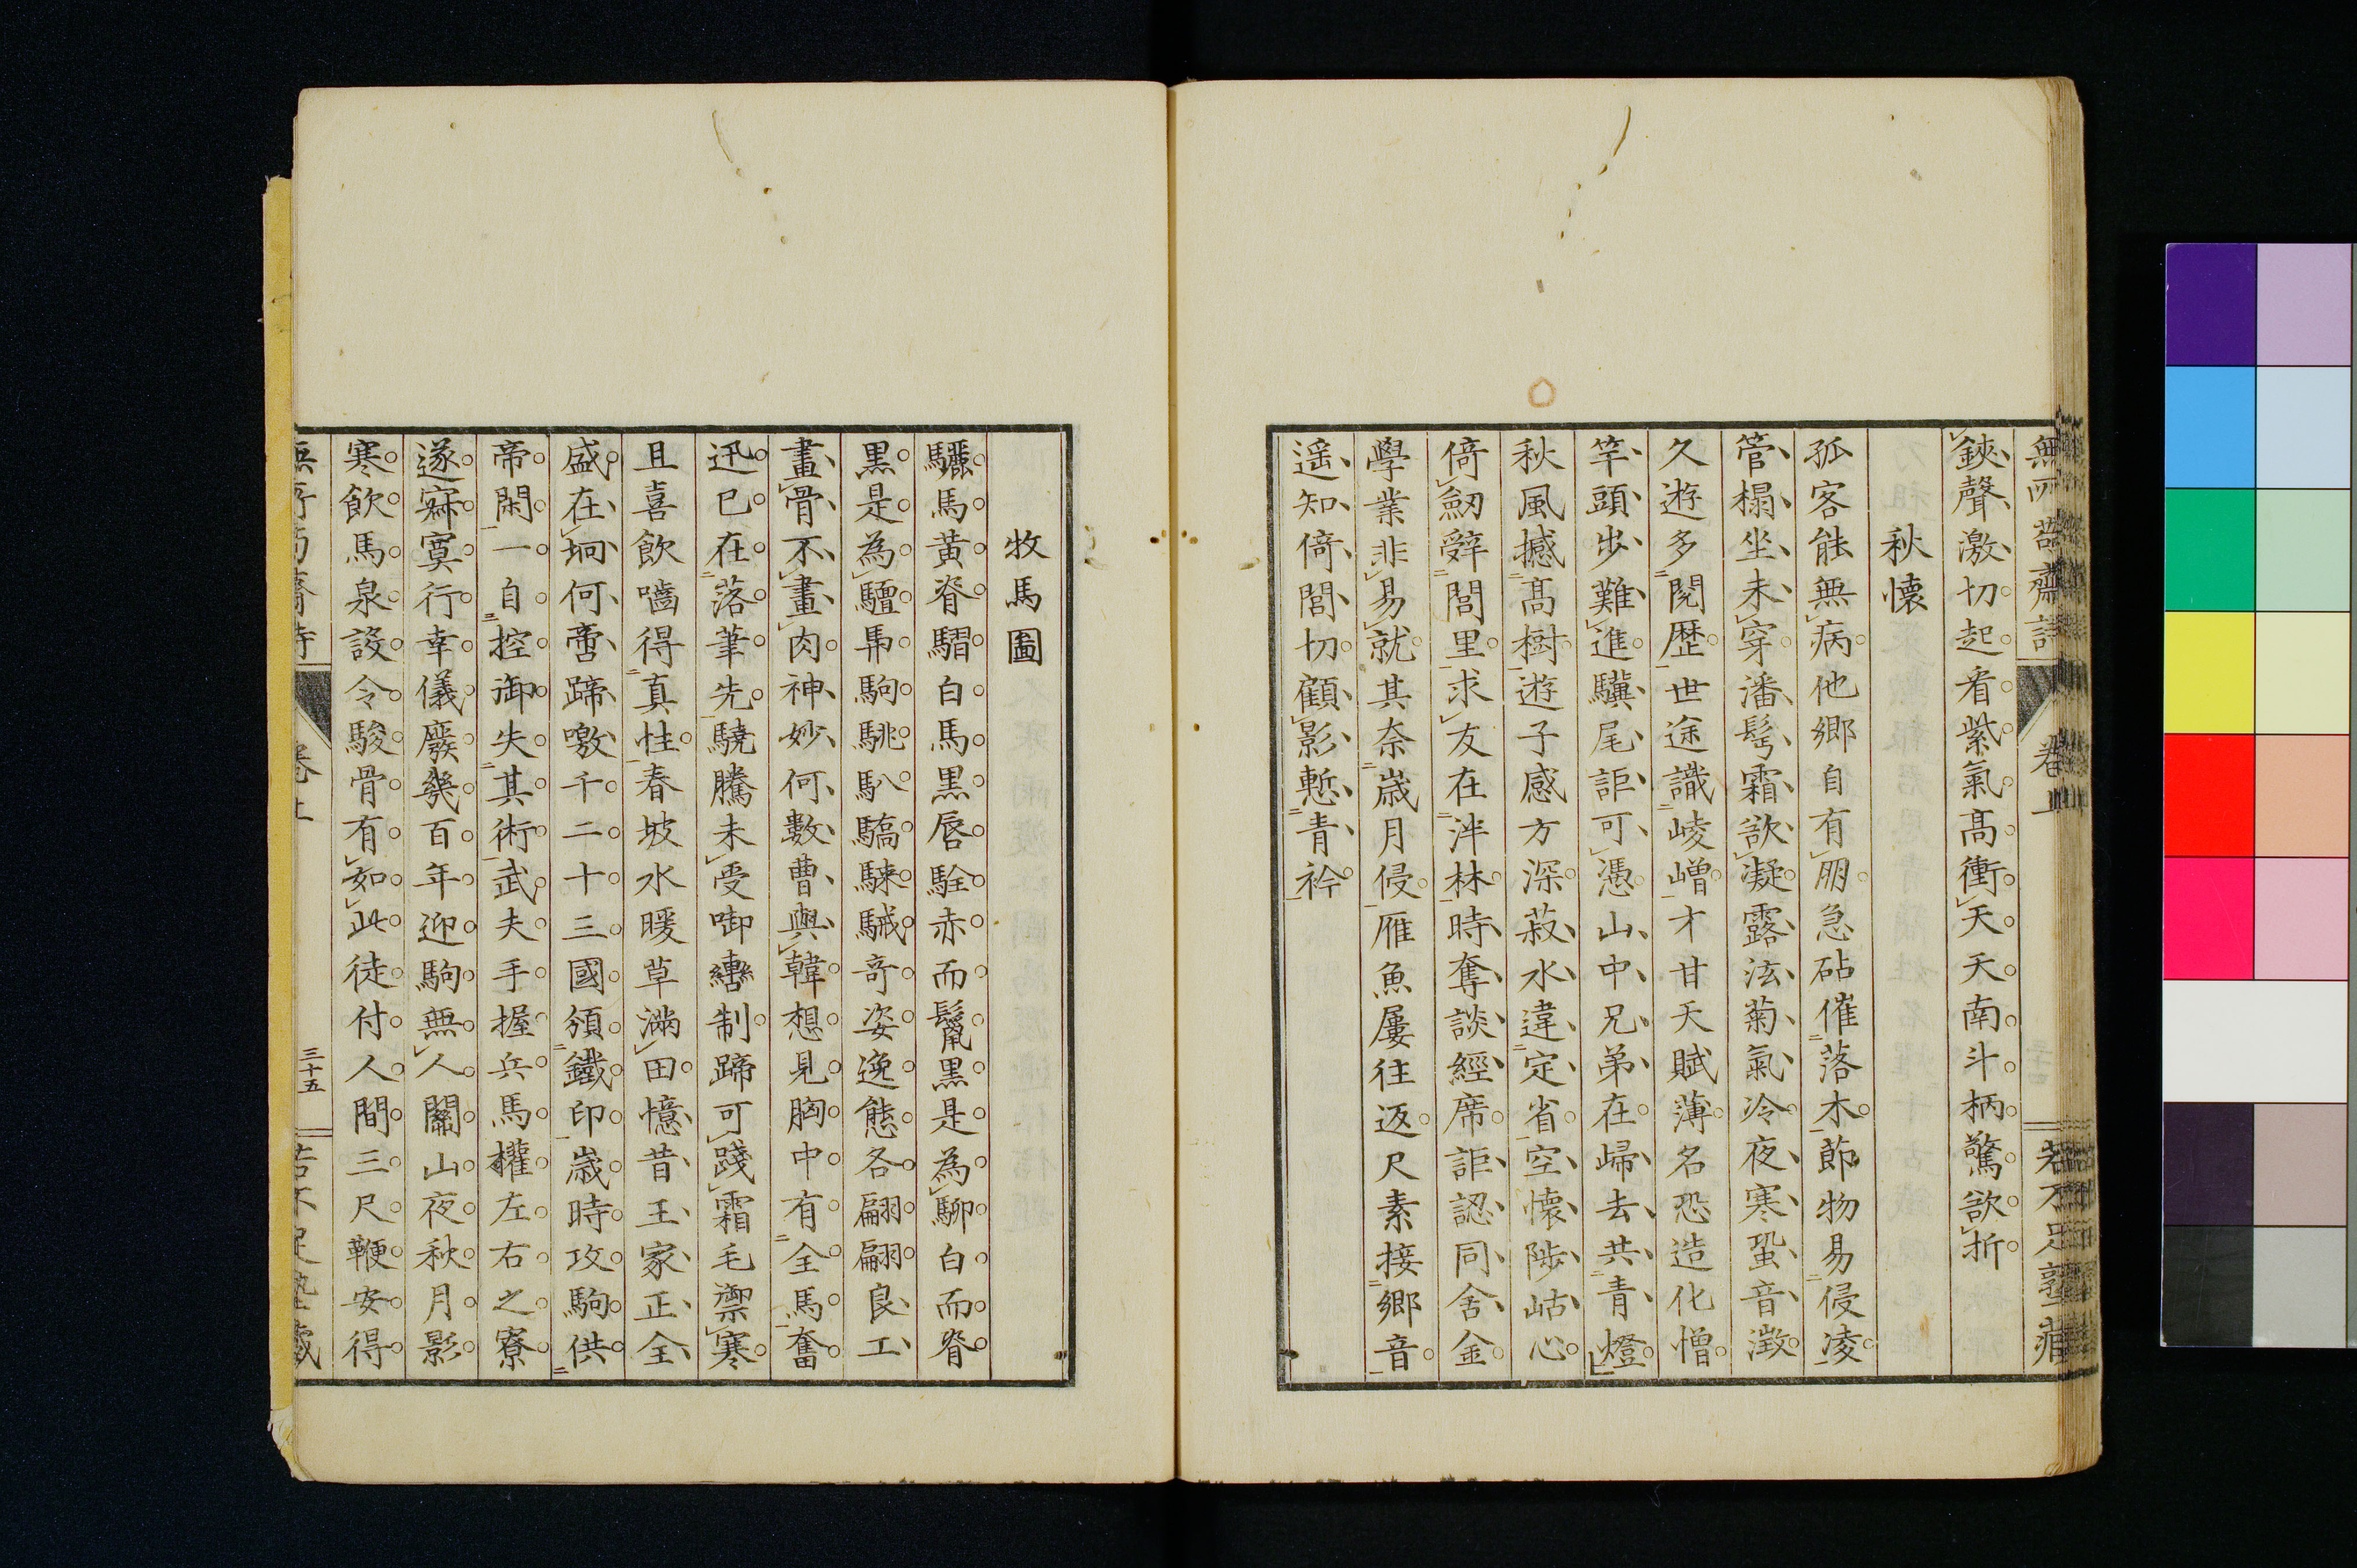 鋏聲激切起看紫氣高衝天天南斗柄驚欲折
秋懷
孤客能無病他鄉自有朋急砧催落木節物易侵凌
管榻坐未穿潘髩霜欲凝露泫菊氣冷夜寒蛩音澂
久遊多閱歷世途識崚嶒才甘天賦薄名恐造化憎
竿頭步難進驥尾詎可憑山中兄弟在歸去共青燈
秋風撼高樹遊子感方深菽水違定省空懷陟岵心
倚劒辭閭里求友在泮林時奪談經席詎認同舍金
學業非易就其奈歲月侵雁魚屢往返尺素接鄉音
遥知倚閭切顧影慙青衿
牧馬圖
驪馬黃脊騽白馬黑唇駩赤而鬣黑是為駵白而脊
黑是為驙馵駒駣馭驕騋駥奇姿逸態各翩翩良工
畫骨不畫肉神妙何數曹與韓想見胸中有全馬奮
迅已在落筆先驍騰未受啣轡制蹄可踐霜毛禦寒
且喜飲嚙得真性春坡水暖草滿田憶昔王家正全
盛在坰何啻蹄噭千二十三國頒鐵印歲時攻駒供
帝閑一自控御失其術武夫手握兵馬權左右之寮
遂寂寞行幸儀廢幾百年迎駒無人關山夜秋月影
寒飲馬泉設令駿骨有如此徒付人間三尺鞭安得
卷上
三十五